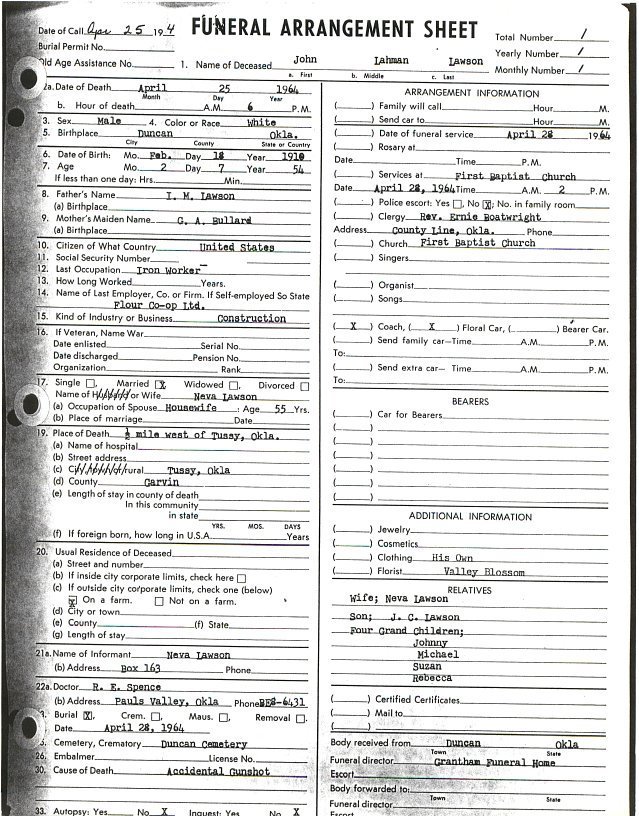 FUNERAL ARRANGEMENT SHEET
Date of Call Apr 25 1964
Burial Permit No.
Total Number 1
Yearly Number 1
Monthly Number 1
Old Age Assistance No. 1. Name of Deceased John Lahman Lawson
a. First b. Middle c. Last
2a. Date of Death April 25 1964
Month Day Year
b. Hour of death A.M. 6 P.M.
3. Sex Male 4. Color or Race White
5. Birthplace Duncan Okla.
City County State or Country
6. Date of Birth: Mo. Feb. Day 18 Year 1910
7. Age Mo. 2 Day 7 Year 54
If less than one day: Hrs. Min.
8. Father's Name I. M. Lawson
(a) Birthplace
9. Mother's Maiden Name G. A. Bullard
(a) Birthplace
10. Citizen of What Country United States
11. Social Security Number
12. Last Occupation Iron Worker
13. How Long Worked Years.
14. Name of Last Employer, Co. or Firm. If Self-employed So State
Flour Co-op Ltd.
15. Kind of Industry or Business Construction
16. If Veteran, Name War
Date enlisted Serial No.
Date discharged Pension No.
Organization Rank
17. Single Married X Widowed Divorced
Name of Husband or Wife Neva Lawson
(a) Occupation of Spouse Housewife : Age 55 Yrs.
(b) Place of marriage Date
19. Place of Death ½ mile west of Tussy, Okla.
(a) Name of hospital
(b) Street address
(c) rural Tussy, Okla
(d) County Garvin
(e) Length of stay in county of death
In this community
in state
YRS. MOS. DAYS
(f) If foreign born, how long in U.S.A. Years
20. Usual Residence of Deceased
(a) Street and number
(b) If inside city corporate limits, check here
(c) If outside city corporate limits, check one (below)
X On a farm. Not on a farm.
(d) City or town
(e) County (f) State
(g) Length of stay
21a. Name of Informant Neva Lawson
(b) Address Box 163 Phone
22a. Doctor R. E. Spence
(b) Address Pauls Valley, Okla Phone BE8-6431
Burial X, Crem. , Maus. , Removal .
Date April 28, 1964
Cemetery, Crematory Duncan Cemetery
26. Embalmer License No.
30. Cause of Death Accidental Gunshot
33. Autopsy: Yes No X Inquest: Yes No X
ARRANGEMENT INFORMATION
( ) Family will call Hour M.
( ) Send car to Hour M.
( ) Date of funeral service April 28 1964
( ) Rosary at
Date Time P.M.
( ) Services at First Baptist Church
Date April 28, 1964 Time A.M. 2 P.M.
( ) Police escort: Yes , No X; No. in family room
( ) Clergy Rev. Ernie Boatwright
Address County Line, Okla. Phone
( ) Church First Baptist Church
( ) Singers
( ) Organist
( ) Songs
( X ) Coach, ( X ) Floral Car, ( ) Bearer Car.
( ) Send family car—Time A.M. P.M.
To:
( ) Send extra car— Time A.M. P.M.
To:
BEARERS
( ) Car for Bearers
( )
( )
( )
( )
( )
( )
( )
ADDITIONAL INFORMATION
( ) Jewelry
( ) Cosmetics
( ) Clothing His Own
( ) Florist Valley Blossom
RELATIVES
Wife; Neva Lawson
Son; J. C. Lawson
Four Grand Children;
Johnny
Michael
Suzan
Rebecca
( ) Certified Certificates
( ) Mail to
( )
Body received from Duncan Okla
Town State
Funeral director Grantham Funeral Home
Escort
Body forwarded to:
Town State
Funeral director
Escort